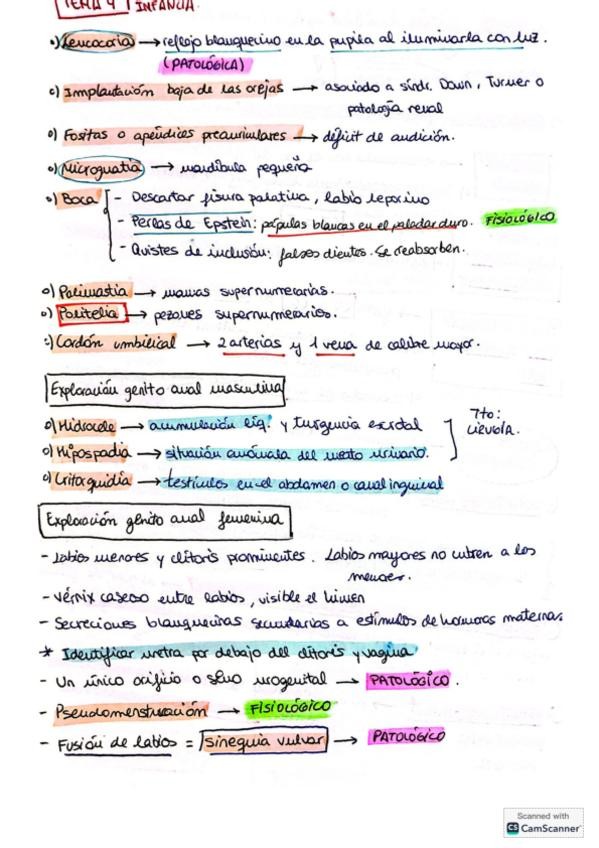 TEMA 4 | INFANCIA.
o) Leucocoria → reflejo blanquecino en la pupila al iluminarla con luz.
(PATOLÓGICA)
o) Implantación baja de las orejas → asociado a síndr. Down, Turner o
patología renal
o) Fositas o apéndices preauriculares → déficit de audición.
o) Micrognatia → mandíbula pequeña
o) Boca - Descartar fisura palatina, labio leporino
- Perlas de Epstein: pápulas blancas en el paladar duro. FISIOLÓGICO
- Quistes de inclusión: falsos dientes. Se reabsorben.
o) Polimastia → mamas supernumerarias.
o) Politelia → pezones supernumerarios.
o) Cordón umbilical → 2 arterias y 1 vena de calibre mayor.
Exploración genito anal masculina
o) Hidrocele → acumulación líq. y turgencia escrotal
o) Hipospadia → situación anómala del meato urinario.
Tto:
CIRUGÍA.
o) Criptorquidia → testículos en el abdomen o canal inguinal
Exploración genito anal femenina
- Labios menores y clítoris prominentes. Labios mayores no cubren a los
menores.
- Vérnix caseoso entre labios, visible el himen
- Secreciones blanquecinas secundarias a estímulos de hormonas maternas
* Identificar uretra por debajo del clítoris y vagina
- Un único orificio o seno urogenital → PATOLÓGICO.
- Pseudomenstruación → FISIOLÓGICO
- Fusión de labios = sinequia vulvar → PATOLÓGICO
Scanned with
CS CamScanner